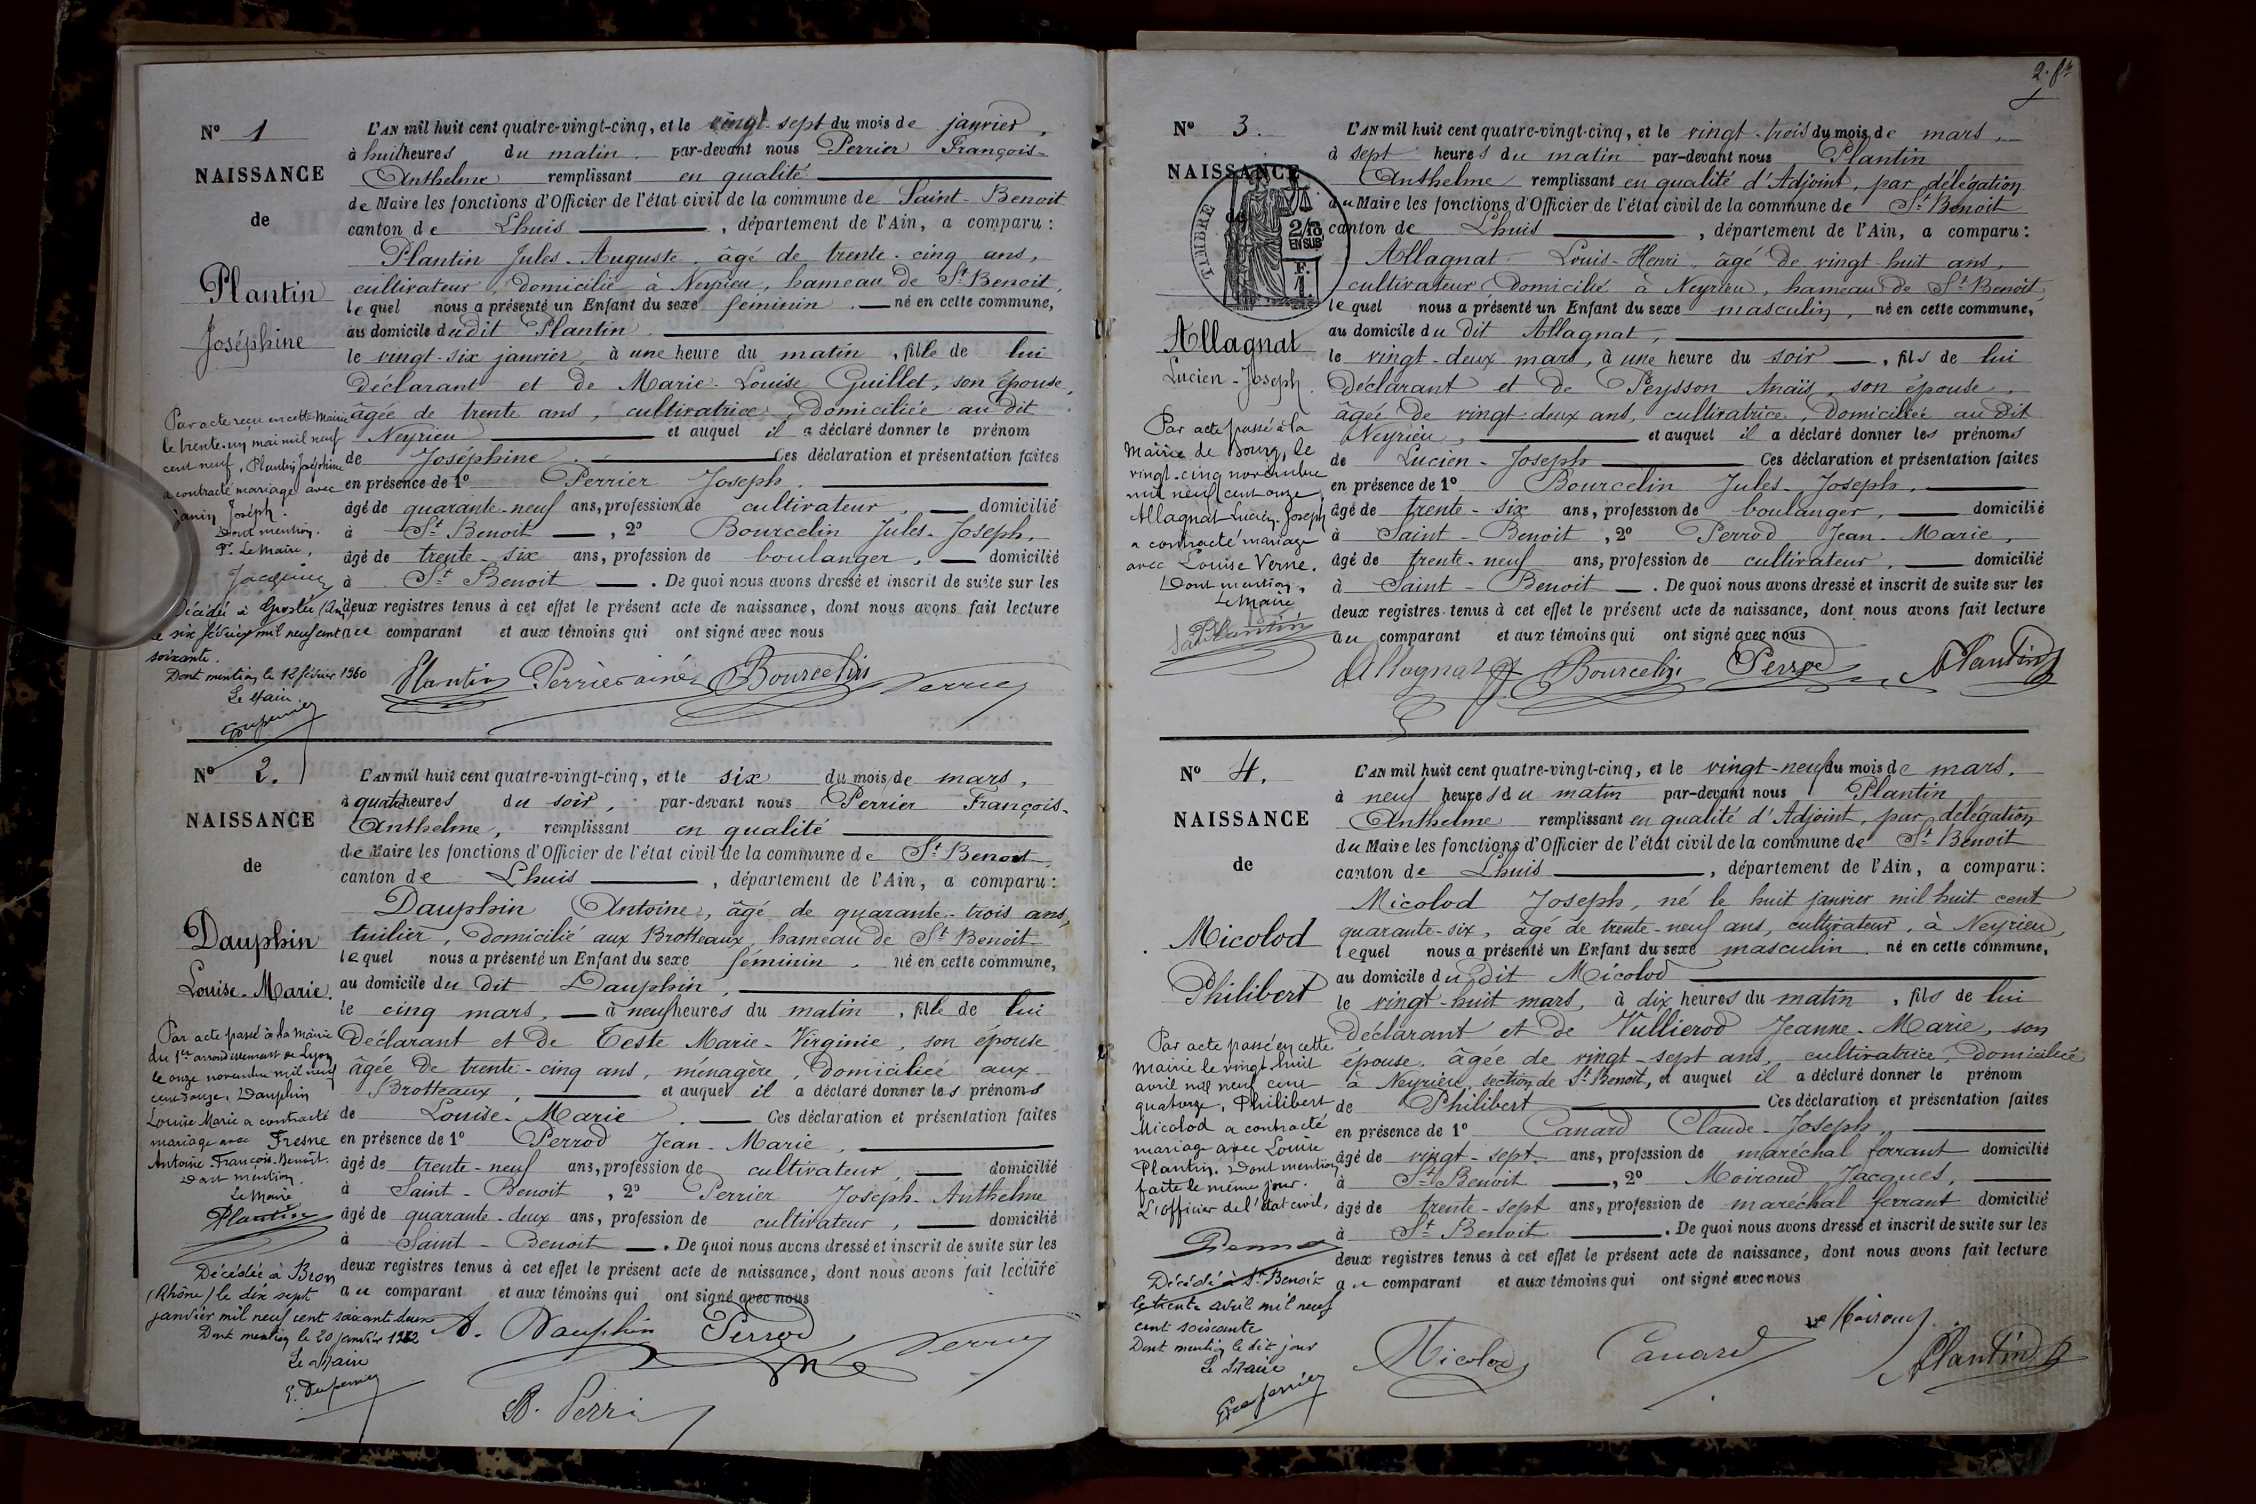 N° 1
NAISSANCE
de
Plantin
Joséphine
Par acte reçu en cette Mairie
le trente-un mai mil neuf
cent neuf, Plantin Joséphine
a contracté mariage avec
Janin Joseph.
Dont mention.
Le Maire,
Jacquin
Décédée à Groslée (Ain)
le six février mil neuf cent
soixante.
Dont mention le 12 février 1960
Le Maire
L'AN mil huit cent quatre-vingt-cinq, et le vingt-sept du mois de janvier,
à huit heures du matin, par-devant nous Perrier François-
Anthelme remplissant en qualité
de Maire les fonctions d'Officier de l'état civil de la commune de Saint-Benoit
canton de Lhuis, département de l'Ain, a comparu:
Plantin Jules-Auguste, âgé de trente-cinq ans,
cultivateur, domicilié à Neyrieu, hameau de St Benoit,
lequel nous a présenté un Enfant du sexe féminin, né en cette commune,
au domicile du dit Plantin
le vingt-six janvier, à une heure du matin, fille de lui
déclarant et de Marie-Louise Guillet, son épouse,
âgée de trente ans, cultivatrice, domiciliée au dit
Neyrieu et auquel il a déclaré donner le prénom
de Joséphine. Ces déclaration et présentation faites
en présence de 1° Perrier Joseph,
âgé de quarante-neuf ans, profession de cultivateur, domicilié
à St Benoit, 2° Bourcelin Jules-Joseph,
âgé de trente-six ans, profession de boulanger, domicilié
à St Benoit. De quoi nous avons dressé et inscrit de suite sur les
deux registres tenus à cet effet le présent acte de naissance, dont nous avons fait lecture
au comparant et aux témoins qui ont signé avec nous
Plantin Perrier ainé Bourcelin Perrier
N° 2.
NAISSANCE
de
Dauphin
Louise-Marie.
Par acte passé à la Mairie
du 1er arrondissement de Lyon
le onze novembre mil neuf
cent douze, Dauphin
Louise Marie a contracté
mariage avec Fresne
Antoine-François-Benoît.
Dont mention.
Le Maire
Plantin
Décédée à Bron
(Rhône) le dix sept
janvier mil neuf cent soixante deux
Dont mention le 20 janvier 1962
Le Maire
L'AN mil huit cent quatre-vingt-cinq, et le six du mois de mars,
à quatre heures du soir, par-devant nous Perrier François-
Anthelme, remplissant en qualité
de Maire les fonctions d'Officier de l'état civil de la commune de St Benoit
canton de Lhuis, département de l'Ain, a comparu:
Dauphin Antoine, âgé de quarante-trois ans,
tuilier, domicilié aux Brotteaux, hameau de St Benoit
lequel nous a présenté un Enfant du sexe féminin, né en cette commune,
au domicile du dit Dauphin,
le cinq mars, à neuf heures du matin, fille de lui
déclarant et de Teste Marie-Virginie, son épouse
âgée de trente-cinq ans, ménagère, domiciliée aux
Brotteaux, et auquel il a déclaré donner les prénoms
de Louise-Marie. Ces déclaration et présentation faites
en présence de 1° Perrod Jean-Marie,
âgé de trente-neuf ans, profession de cultivateur, domicilié
à Saint-Benoit, 2° Perrier Joseph-Anthelme
âgé de quarante-deux ans, profession de cultivateur, domicilié
à Saint-Benoit. De quoi nous avons dressé et inscrit de suite sur les
deux registres tenus à cet effet le présent acte de naissance, dont nous avons fait lecture
au comparant et aux témoins qui ont signé avec nous
A. Dauphin Perrod Perrier
2. ft
N° 3.
NAISSANCE
de
TIMBRE
2/10 EN SUS
F. 1
Allagnat
Lucien-Joseph.
Par acte passé à la
Mairie de Bourg, le
vingt-cinq novembre
mil neuf cent onze,
Allagnat Lucien-Joseph
a contracté mariage
avec Louise Verne.
Dont mention,
Le Maire,
Plantin
L'AN mil huit cent quatre-vingt-cinq, et le vingt-trois du mois de mars,
à sept heures du matin par-devant nous Plantin
Anthelme remplissant en qualité d'Adjoint, par délégation
du Maire les fonctions d'Officier de l'état civil de la commune de St Benoit
canton de Lhuis, département de l'Ain, a comparu:
Allagnat Louis-Henri, âgé de vingt-huit ans,
cultivateur domicilié à Neyrieu, hameau de St Benoit,
lequel nous a présenté un Enfant du sexe masculin, né en cette commune,
au domicile du dit Allagnat,
le vingt-deux mars, à une heure du soir, fils de lui
déclarant et de Peysson Anaïs, son épouse,
âgée de vingt-deux ans, cultivatrice, domiciliée au dit
Neyrieu, et auquel il a déclaré donner les prénoms
de Lucien-Joseph Ces déclaration et présentation faites
en présence de 1° Bourcelin Jules-Joseph,
âgé de trente-six ans, profession de boulanger, domicilié
à Saint-Benoit, 2° Perrod Jean-Marie,
âgé de trente-neuf ans, profession de cultivateur, domicilié
à Saint-Benoit. De quoi nous avons dressé et inscrit de suite sur les
deux registres tenus à cet effet le présent acte de naissance, dont nous avons fait lecture
au comparant et aux témoins qui ont signé avec nous
Allagnat Bourcelin Perrod Plantin
N° 4.
NAISSANCE
de
Micolod
Philibert
Par acte passé en cette
Mairie le vingt-huit
avril mil neuf cent
quatorze, Philibert
Micolod a contracté
mariage avec Louise
Plantin. Dont mention
faite le même jour.
L'officier de l'état civil,
Décédé à St Benoit
le trente avril mil neuf
cent soixante
Dont mention le dit jour
Le Maire
L'AN mil huit cent quatre-vingt-cinq, et le vingt-neuf du mois de mars,
à neuf heures du matin par-devant nous Plantin
Anthelme remplissant en qualité d'Adjoint, par délégation
du Maire les fonctions d'Officier de l'état civil de la commune de St Benoit
canton de Lhuis, département de l'Ain, a comparu:
Micolod Joseph, né le huit janvier mil huit cent
quarante-six, âgé de trente-neuf ans, cultivateur, à Neyrieu,
lequel nous a présenté un Enfant du sexe masculin né en cette commune,
au domicile du dit Micolod
le vingt-huit mars, à dix heures du matin, fils de lui
déclarant et de Vullierod Jeanne-Marie, son
épouse, âgée de vingt-sept ans, cultivatrice, domiciliée
à Neyrieu, section de St Benoit, et auquel il a déclaré donner le prénom
de Philibert Ces déclaration et présentation faites
en présence de 1° Canard Claude-Joseph,
âgé de vingt-sept ans, profession de maréchal ferrant domicilié
à St Benoit, 2° Moiroud Jacques,
âgé de trente-sept ans, profession de maréchal ferrant domicilié
à St Benoit. De quoi nous avons dressé et inscrit de suite sur les
deux registres tenus à cet effet le présent acte de naissance, dont nous avons fait lecture
au comparant et aux témoins qui ont signé avec nous
Moiroud
Micolod Canard Plantin